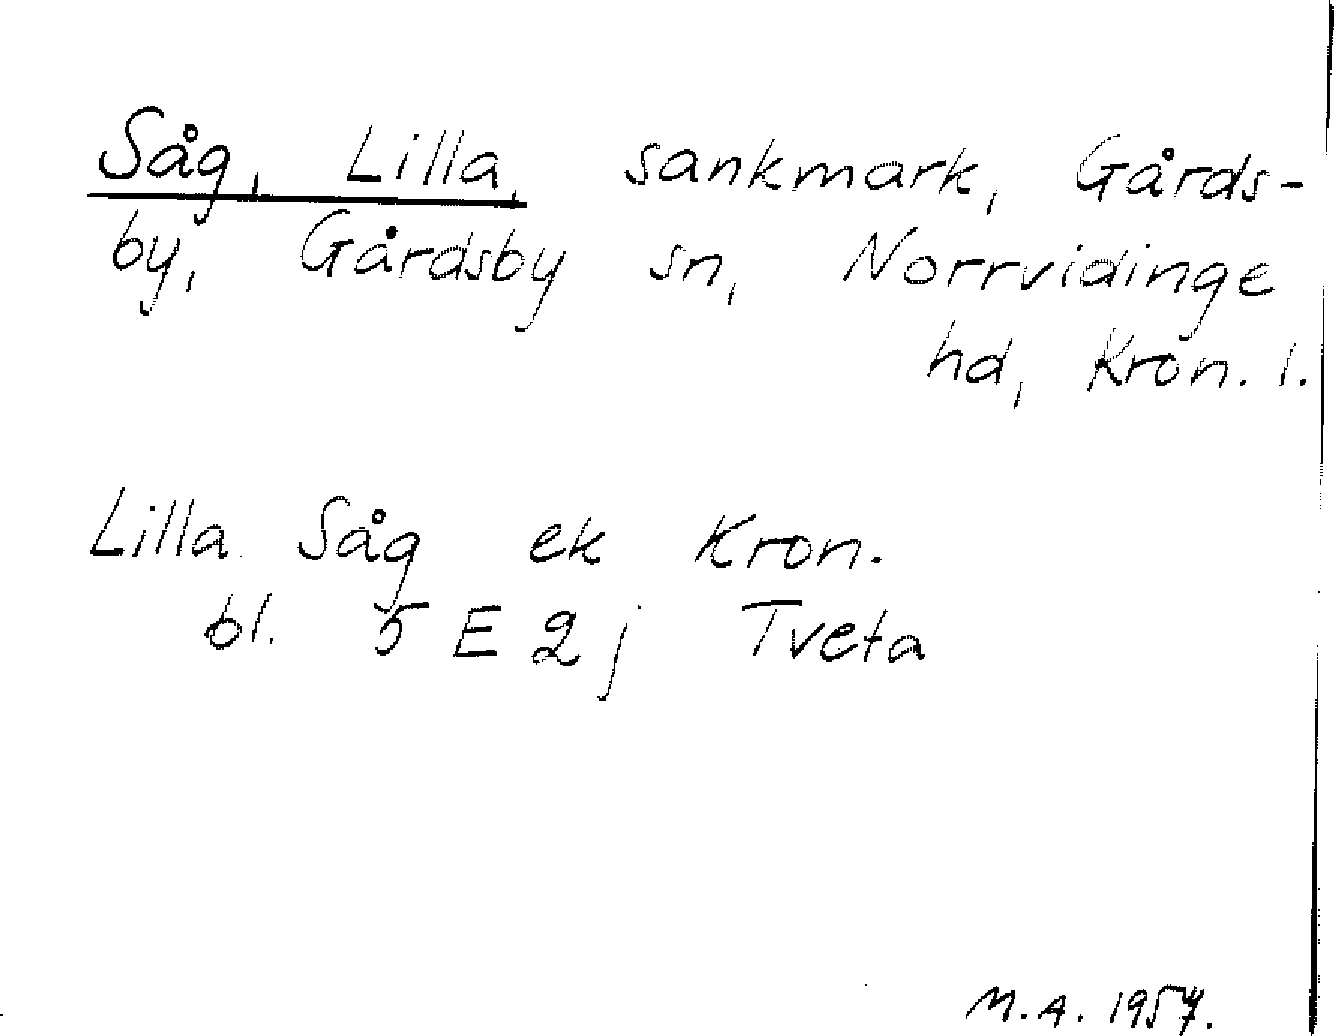 Såg, Lilla, sankmark, Gårds-
by, Gårdsby sn, Norrvidinge
hd, Kron. l.
Lilla Såg ek Kron.
bl. 5 E 2 j Tveta
M.A. 1957.